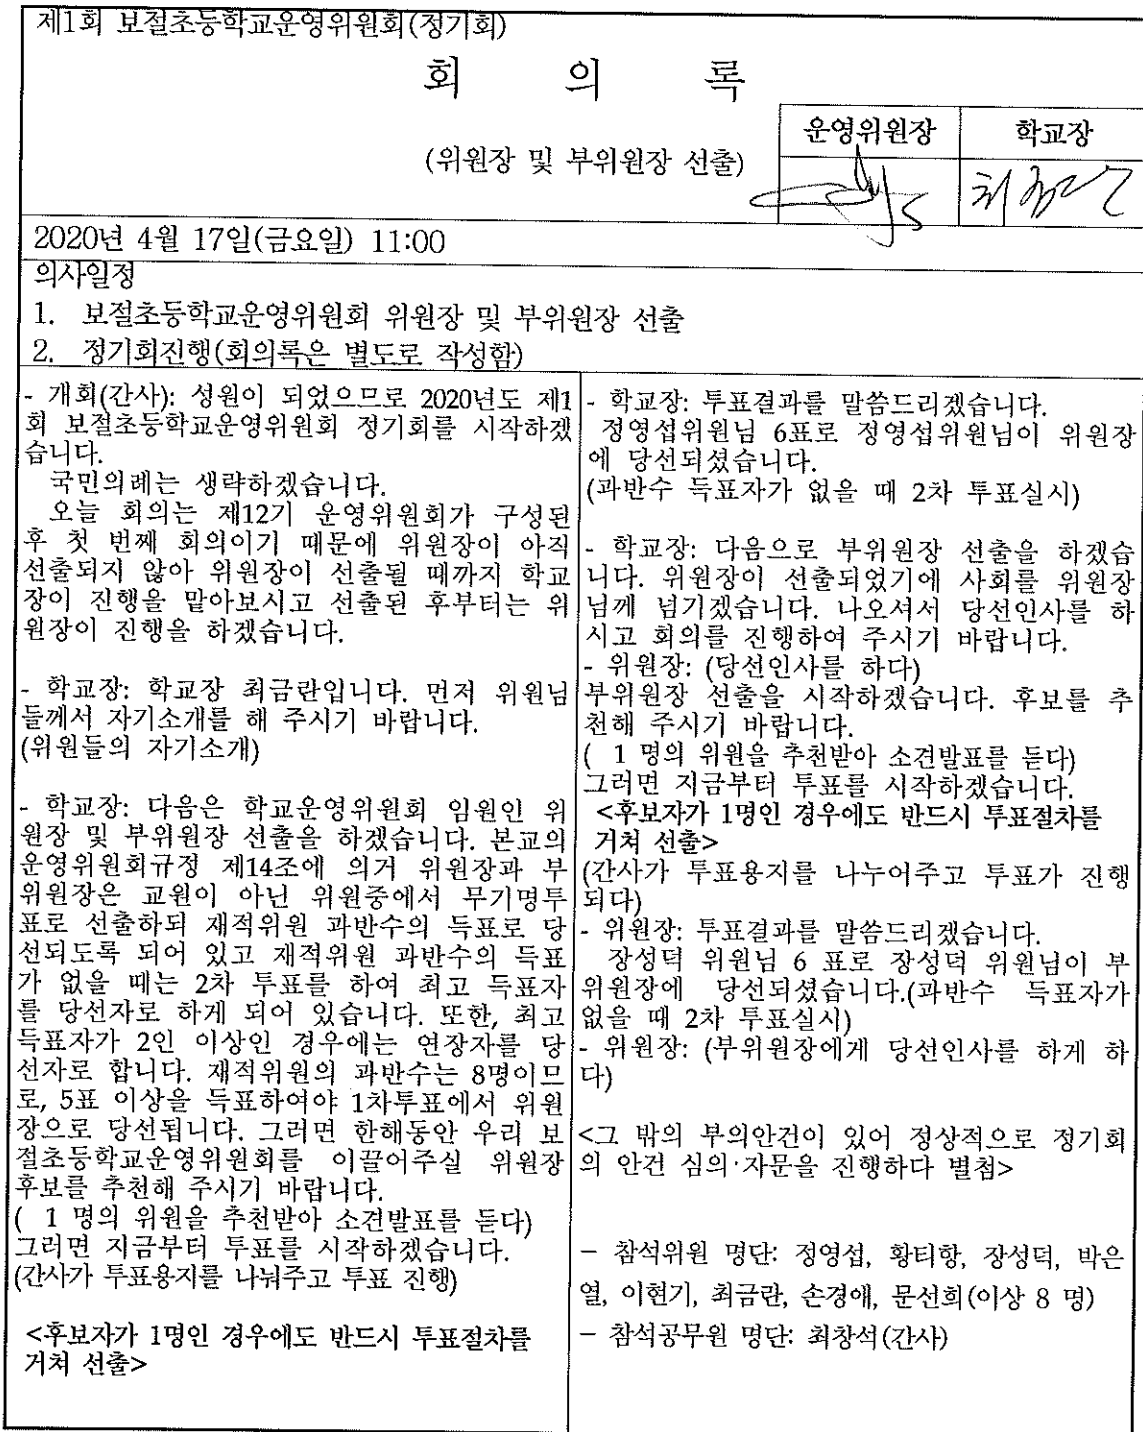 제1회 보절초등학교운영위원회(정기회)
회 의 록
(위원장 및 부위원장 선출)
운영위원장 학교장
2020년 4월 17일(금요일) 11:00
의사일정
1. 보절초등학교운영위원회 위원장 및 부위원장 선출
2. 정기회진행(회의록은 별도로 작성함)
- 개회(간사): 성원이 되었으므로 2020년도 제1
회 보절초등학교운영위원회 정기회를 시작하겠
습니다.
국민의례는 생략하겠습니다.
오늘 회의는 제12기 운영위원회가 구성된
후 첫 번째 회의이기 때문에 위원장이 아직
선출되지 않아 위원장이 선출될 때까지 학교
장이 진행을 맡아보시고 선출된 후부터는 위
원장이 진행을 하겠습니다.
- 학교장: 학교장 최금란입니다. 먼저 위원님
들께서 자기소개를 해 주시기 바랍니다.
(위원들의 자기소개)
- 학교장: 다음은 학교운영위원회 임원인 위
원장 및 부위원장 선출을 하겠습니다. 본교의
운영위원회규정 제14조에 의거 위원장과 부
위원장은 교원이 아닌 위원중에서 무기명투
표로 선출하되 재적위원 과반수의 득표로 당
선되도록 되어 있고 재적위원 과반수의 득표
가 없을 때는 2차 투표를 하여 최고 득표자
를 당선자로 하게 되어 있습니다. 또한, 최고
득표자가 2인 이상인 경우에는 연장자를 당
선자로 합니다. 재적위원의 과반수는 8명이므
로, 5표 이상을 득표하여야 1차투표에서 위원
장으로 당선됩니다. 그러면 한해동안 우리 보
절초등학교운영위원회를 이끌어주실 위원장
후보를 추천해 주시기 바랍니다.
( 1 명의 위원을 추천받아 소견발표를 듣다)
그러면 지금부터 투표를 시작하겠습니다.
(간사가 투표용지를 나눠주고 투표 진행)
<후보자가 1명인 경우에도 반드시 투표절차를
거쳐 선출>
- 학교장: 투표결과를 말씀드리겠습니다.
정영섭위원님 6표로 정영섭위원님이 위원장
에 당선되셨습니다.
(과반수 득표자가 없을 때 2차 투표실시)
- 학교장: 다음으로 부위원장 선출을 하겠습
니다. 위원장이 선출되었기에 사회를 위원장
님께 넘기겠습니다. 나오셔서 당선인사를 하
시고 회의를 진행하여 주시기 바랍니다.
- 위원장: (당선인사를 하다)
부위원장 선출을 시작하겠습니다. 후보를 추
천해 주시기 바랍니다.
( 1 명의 위원을 추천받아 소견발표를 듣다)
그러면 지금부터 투표를 시작하겠습니다.
<후보자가 1명인 경우에도 반드시 투표절차를
거쳐 선출>
(간사가 투표용지를 나누어주고 투표가 진행
되다)
- 위원장: 투표결과를 말씀드리겠습니다.
장성덕 위원님 6 표로 장성덕 위원님이 부
위원장에 당선되셨습니다.(과반수 득표자가
없을 때 2차 투표실시)
- 위원장: (부위원장에게 당선인사를 하게 하
다)
<그 밖의 부의안건이 있어 정상적으로 정기회
의 안건 심의·자문을 진행하다 별첨>
- 참석위원 명단: 정영섭, 황티항, 장성덕, 박은
열, 이현기, 최금란, 손경애, 문선희(이상 8 명)
- 참석공무원 명단: 최창석(간사)